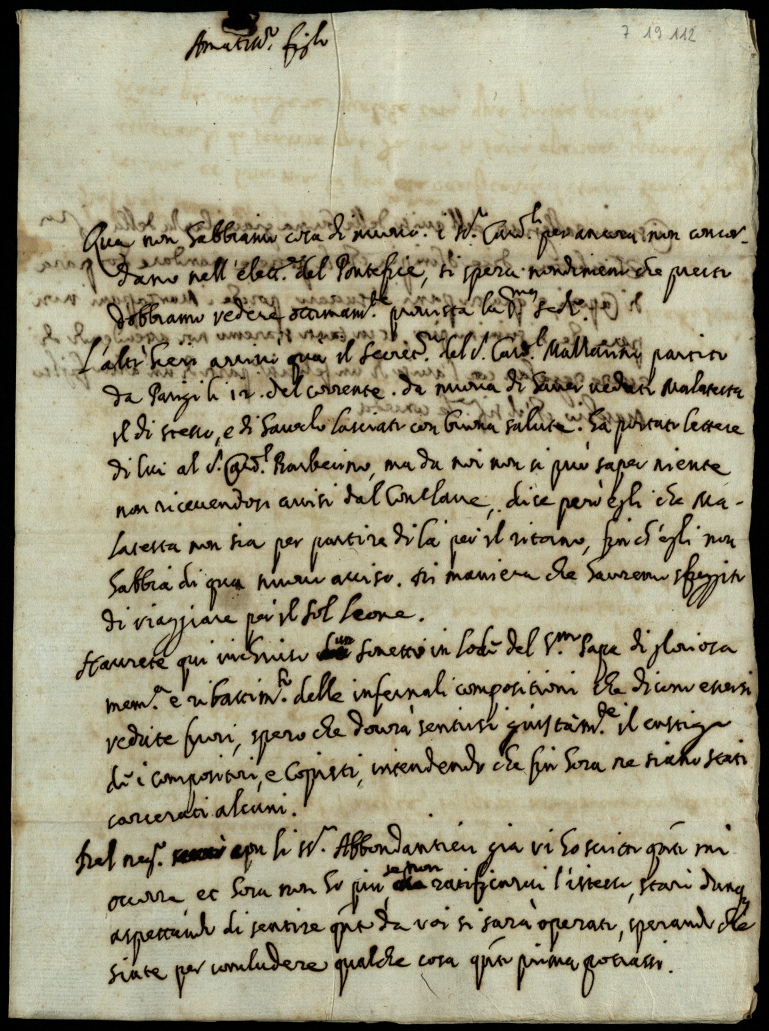 7 19 112
Amatiss.º figlio
Qua non habbiamo cosa di nuovo. i SS.ri Card.li per ancora non concor-
dano nell'elett.ne del Pontefice, si spera nondimeno che presto
dobbiamo vedere ottimam.te provista la S.ta Sede.
L'altr'hieri arrivò qua il Secret.º del S.r Card.l Mazzarini partito
da Parigi li 12. del corrente. da nuova di haver veduto Malatesta
il dì stesso, e di haverlo lasciato con buona salute. ha portato lettere
di lui al S.r Card.l Barberino, ma da noi non si può saper niente
non ricevendosi avvisi dal Conclave, dice però egli che Ma-
latesta non sia per partire di là per il ritorno, finch'egli non
habbia di qua nuovo avviso. di maniera che havremo sfuggito
di viaggiare per il Sol leone.
Haurete qui inchiuso un Sonetto in lode del S.mo Papa di gloriosa
mem.a e ribattim.to delle infernali compositioni che dicono essersi
vedute fuori, spero che dovrà sentirsi giustam.te il castigo
de i compositori, e Copisti, intendendo che fin hora ne siano stati
carcerati alcuni.
Del neg.º con li SS.ri Abbondantieri già vi ho scritto q.to mi
occorra et hora non ho più se non ratificarvi l'istesso, starò dunq.
aspettando di sentire q.to da voi si sarà operato, sperando che
siate per concludere qualche cosa q.to prima potrassi.